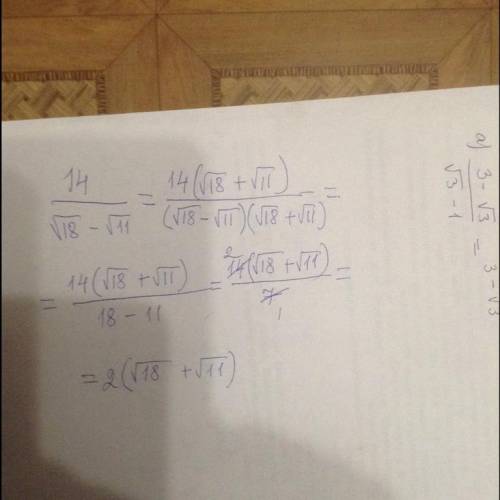 14/(√18 - √11) = 14(√18 + √11)/((√18 - √11)(√18 + √11)) =
= 14(√18 + √11)/(18 - 11) = 2 14(√18 + √11)/7 1 =
= 2(√18 + √11)
а) (3 - √3)/(√3 - 1) = 3 - √3